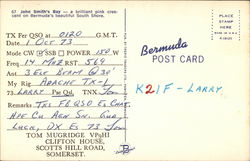 67 John Smith's Bay — a brilliant pink cres-
cent on Bermuda's beautiful South Shore.
TX Fer QSO at 0120 G.M.T.
1 Oct 73
Mode CW SSB POWER 150 W
Freq 14 MHz RST 569
Ant 3 Ele Beam @ 30'
My Rig Apache TX-1
73 Larry Pse QSL Tnx
Remarks Tks FB QSO Es Chat.
Hpe Cu Agn Sn. Gud
Luck, DX Es 73 Tom
TOM MUGRIDGE VP9HI
CLIFTON HOUSE,
SCOTTS HILL ROAD,
SOMERSET.
Bermuda
POST CARD
K2IF - LARRY.